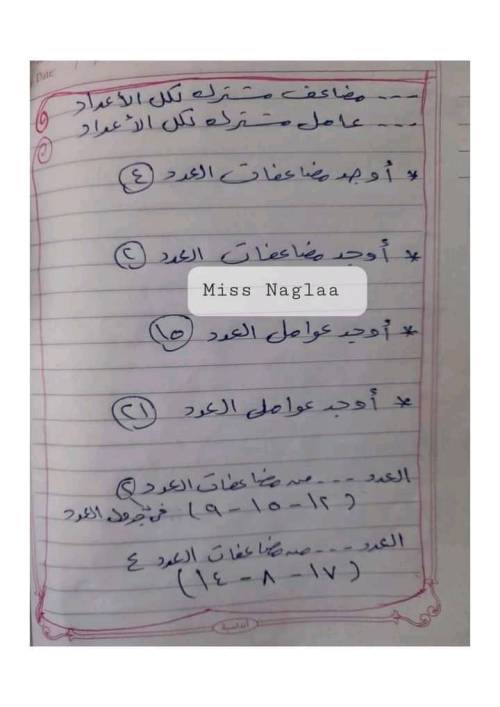 Date
--- مضاعف مشترك لكل الأعداد
--- عامل مشترك لكل الأعداد
* أوجد مضاعفات العدد ٤
* أوجد مضاعفات العدد ٢
Miss Naglaa
* أوجد عوامل العدد ١٥
* أوجد عوامل العدد ٢١
العدد --- من مضاعفات العدد ٢
(١٢ - ١٥ - ٩)
العدد --- من مضاعفات العدد ٤
(١٧ - ٨ - ١٤)